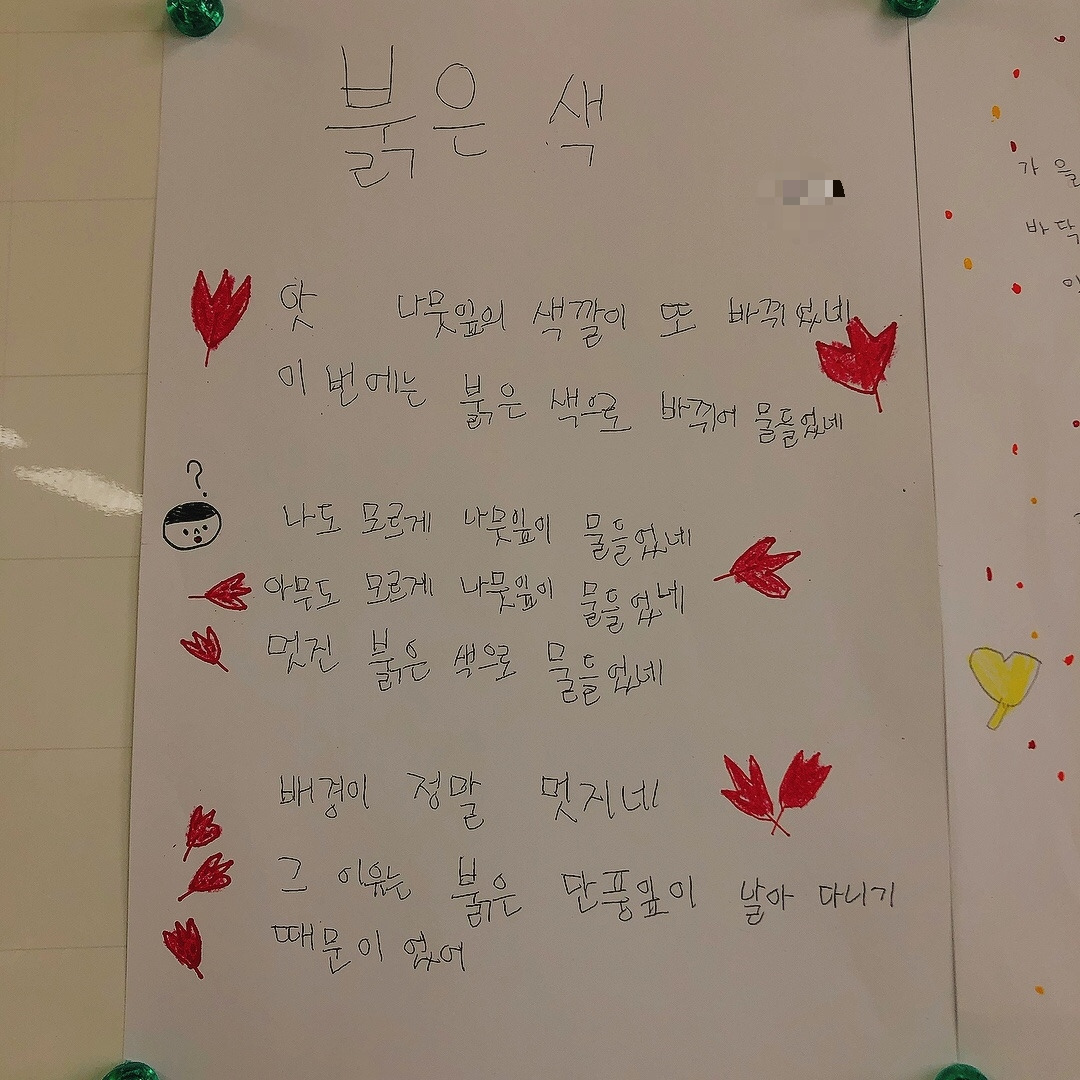 붉은 색
앗 나뭇잎의 색깔이 또 바뀌었네
이번에는 붉은 색으로 바뀌어 물들었네
?
나도 모르게 나뭇잎이 물들었네
아무도 모르게 나뭇잎이 물들었네
멋진 붉은 색으로 물들었네
배경이 정말 멋지네
그 이유는 붉은 단풍잎이 날아 다니기
때문이 없어
가을
바닥